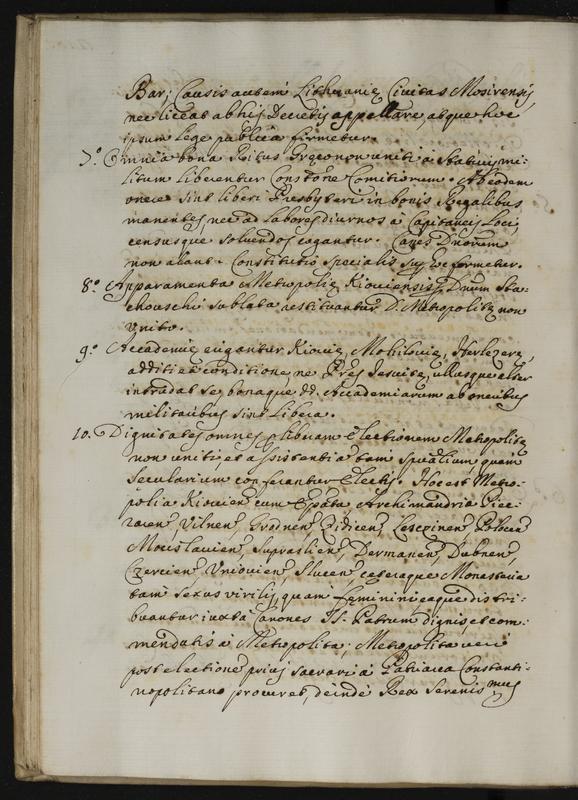 Bar; Causis autem Lithuaniæ Civitas Mosirensis,
nec liceat ab his Decretis appellare, absque hoc
ipsum lege publica firmetur.
7.º Omnia bona Ritus Græco non uniti a stativis mi-
litum liberentur Constõne Comitiorum. Ab eodem
onere sint liberi Presbyteri in bonis Regalibus
manentes, nec ad labores diurnos à Capitaneis Loci,
censusque solvendos cogantur. Canes Dñorum
non alant. Constitutio specialis sup. hoc formetur.
8.º Apparamenta Metropoliæ Kioviensis p Dnum Sta-
chouschi sublata restituantur D. Metropolitæ non
Unito.
9.º Accademiæ erigantur Kioviæ, Mohiloviæ,
addita conditione, ne Pres Jesuitæ, ullusque alter
intradat se, bonaque dd. Accademiarum ab oneribus
militaribus sint libera.
10. Dignitates omnes p liberam Electionem Metropolitæ
non uniti, et assistentia tam spũalium, quam
secularium conferantur Electis. Hoc est Metro-
polia Kiovien cum Epãtu, Archimandria Piec-
zaren, Vilnen, Grodnen, Polocen
Mscislavien, Supraslien, Dermanen, Dubnen,
Czercien, Uniovien, Slucen cæteraque Monasteria
tam sexus virilis, quam feminini, eaque distri-
buantur iuxta Canones SS. Patrum dignis, et com-
mendatis à Metropolita; Metropolita verò
post electionē prius sacrari à Patriarca Constanti-
nopolitano procuret, deinde Rex Serenissmus